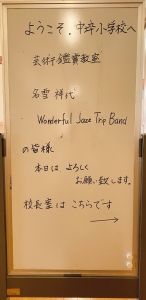 ようこそ.中卒小学校へ
芸術鑑賞教室
名雪祥代
Wonderful Jazz Trip Band
の皆様
本日は よろしく
お願い致します。
校長室は こちらです
→